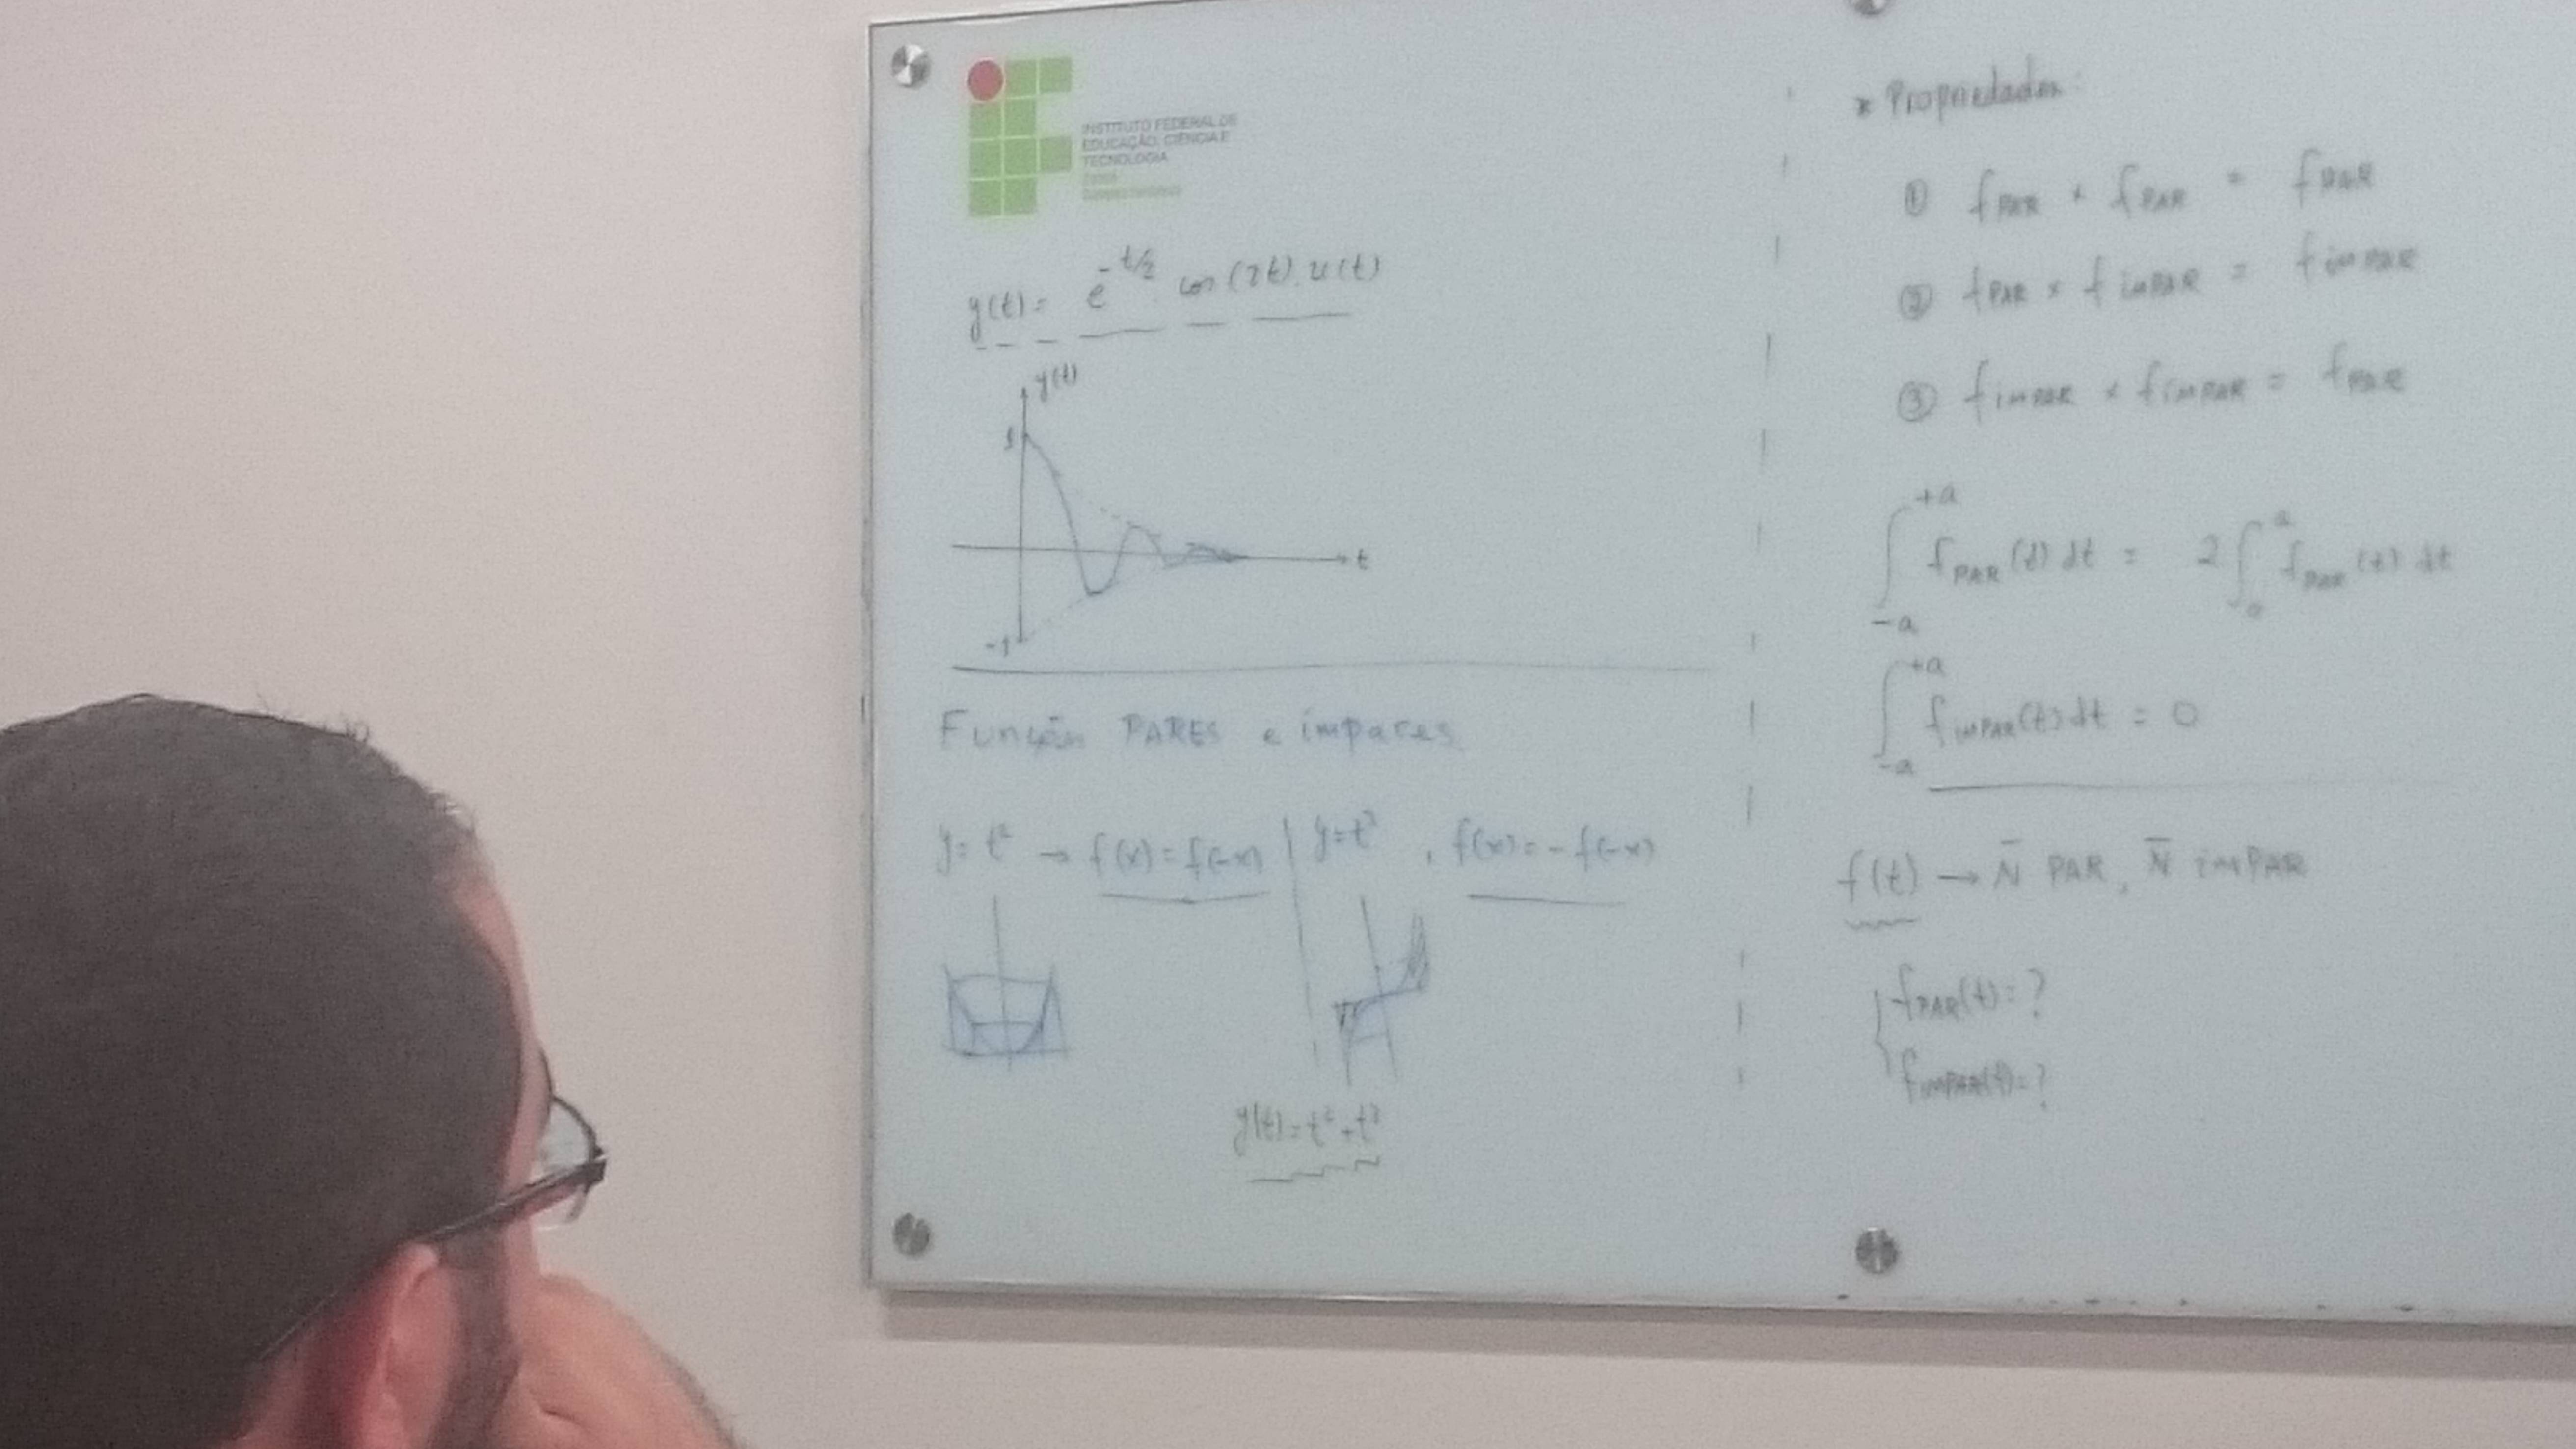 INSTITUTO FEDERAL DE
EDUCAÇÃO, CIÊNCIA E
TECNOLOGIA
y(t) = e^{-t/2} . cos(2t).u(t)
y(t)
1
t
-1
Funções PARES e ímpares
y = t² → f(x) = f(-x) | y = t³ , f(x) = -f(-x)
y(t) = t² + t³
* Propriedades:
① f PAR × f PAR = f PAR
② f PAR × f imPAR = f imPAR
③ f imPAR × f imPAR = f PAR
∫_{-a}^{+a} f PAR (t) dt = 2 ∫_0^a f PAR (t) dt
∫_{-a}^{+a} f imPAR (t) dt = 0
f(t) → N̄ PAR, N̄ imPAR
{ f PAR (t) = ?
f imPAR (t) = ?